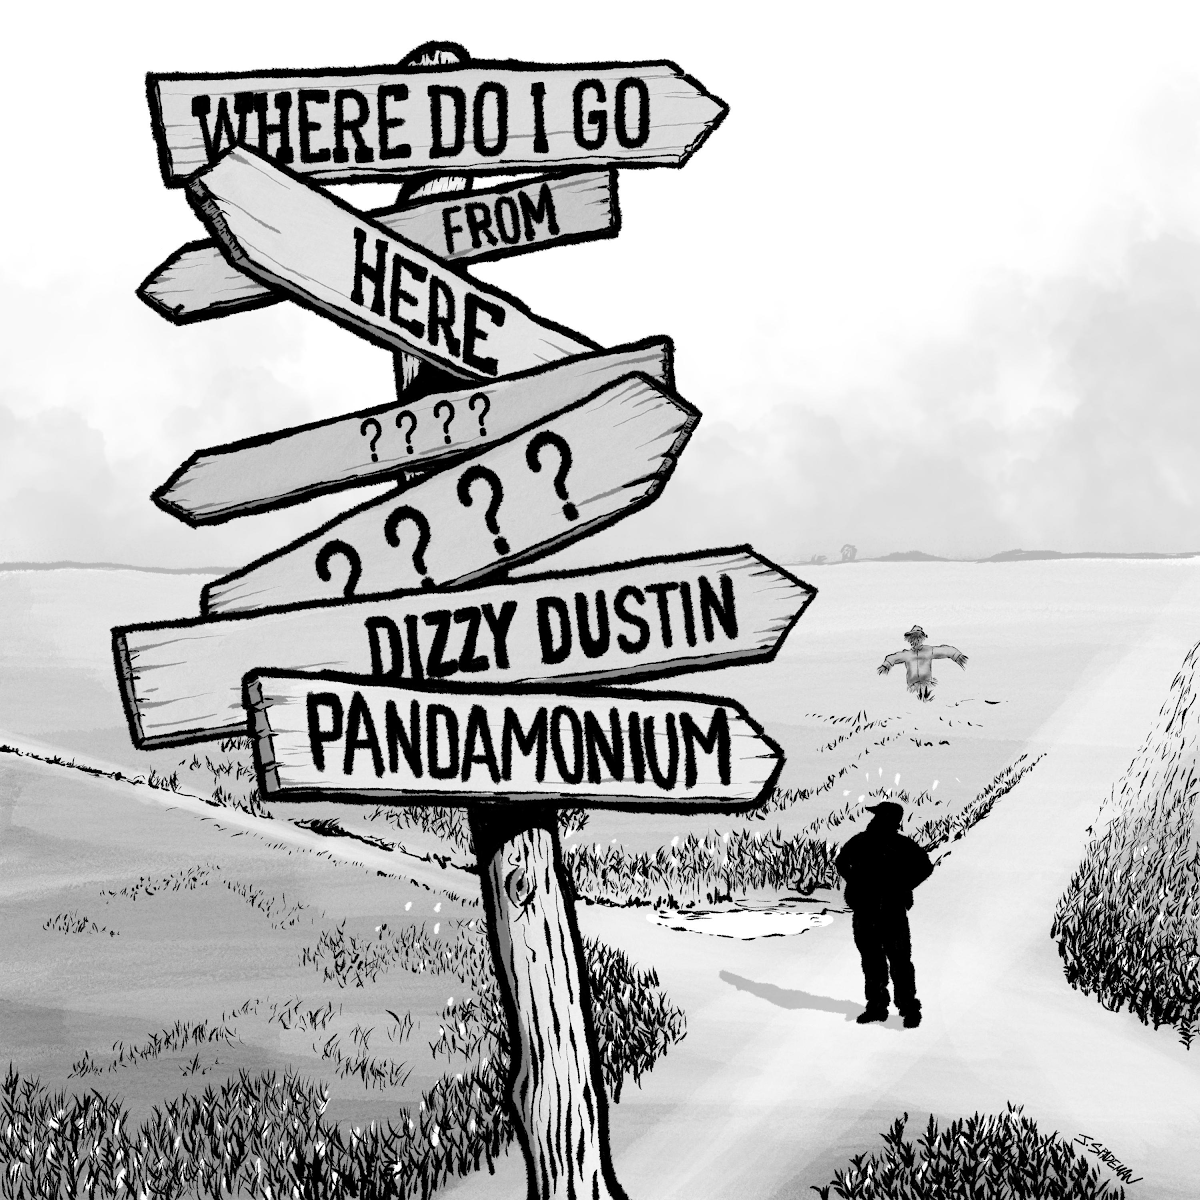 WHERE DO I GO
FROM
HERE
????
????
DIZZY DUSTIN
PANDAMONIUM